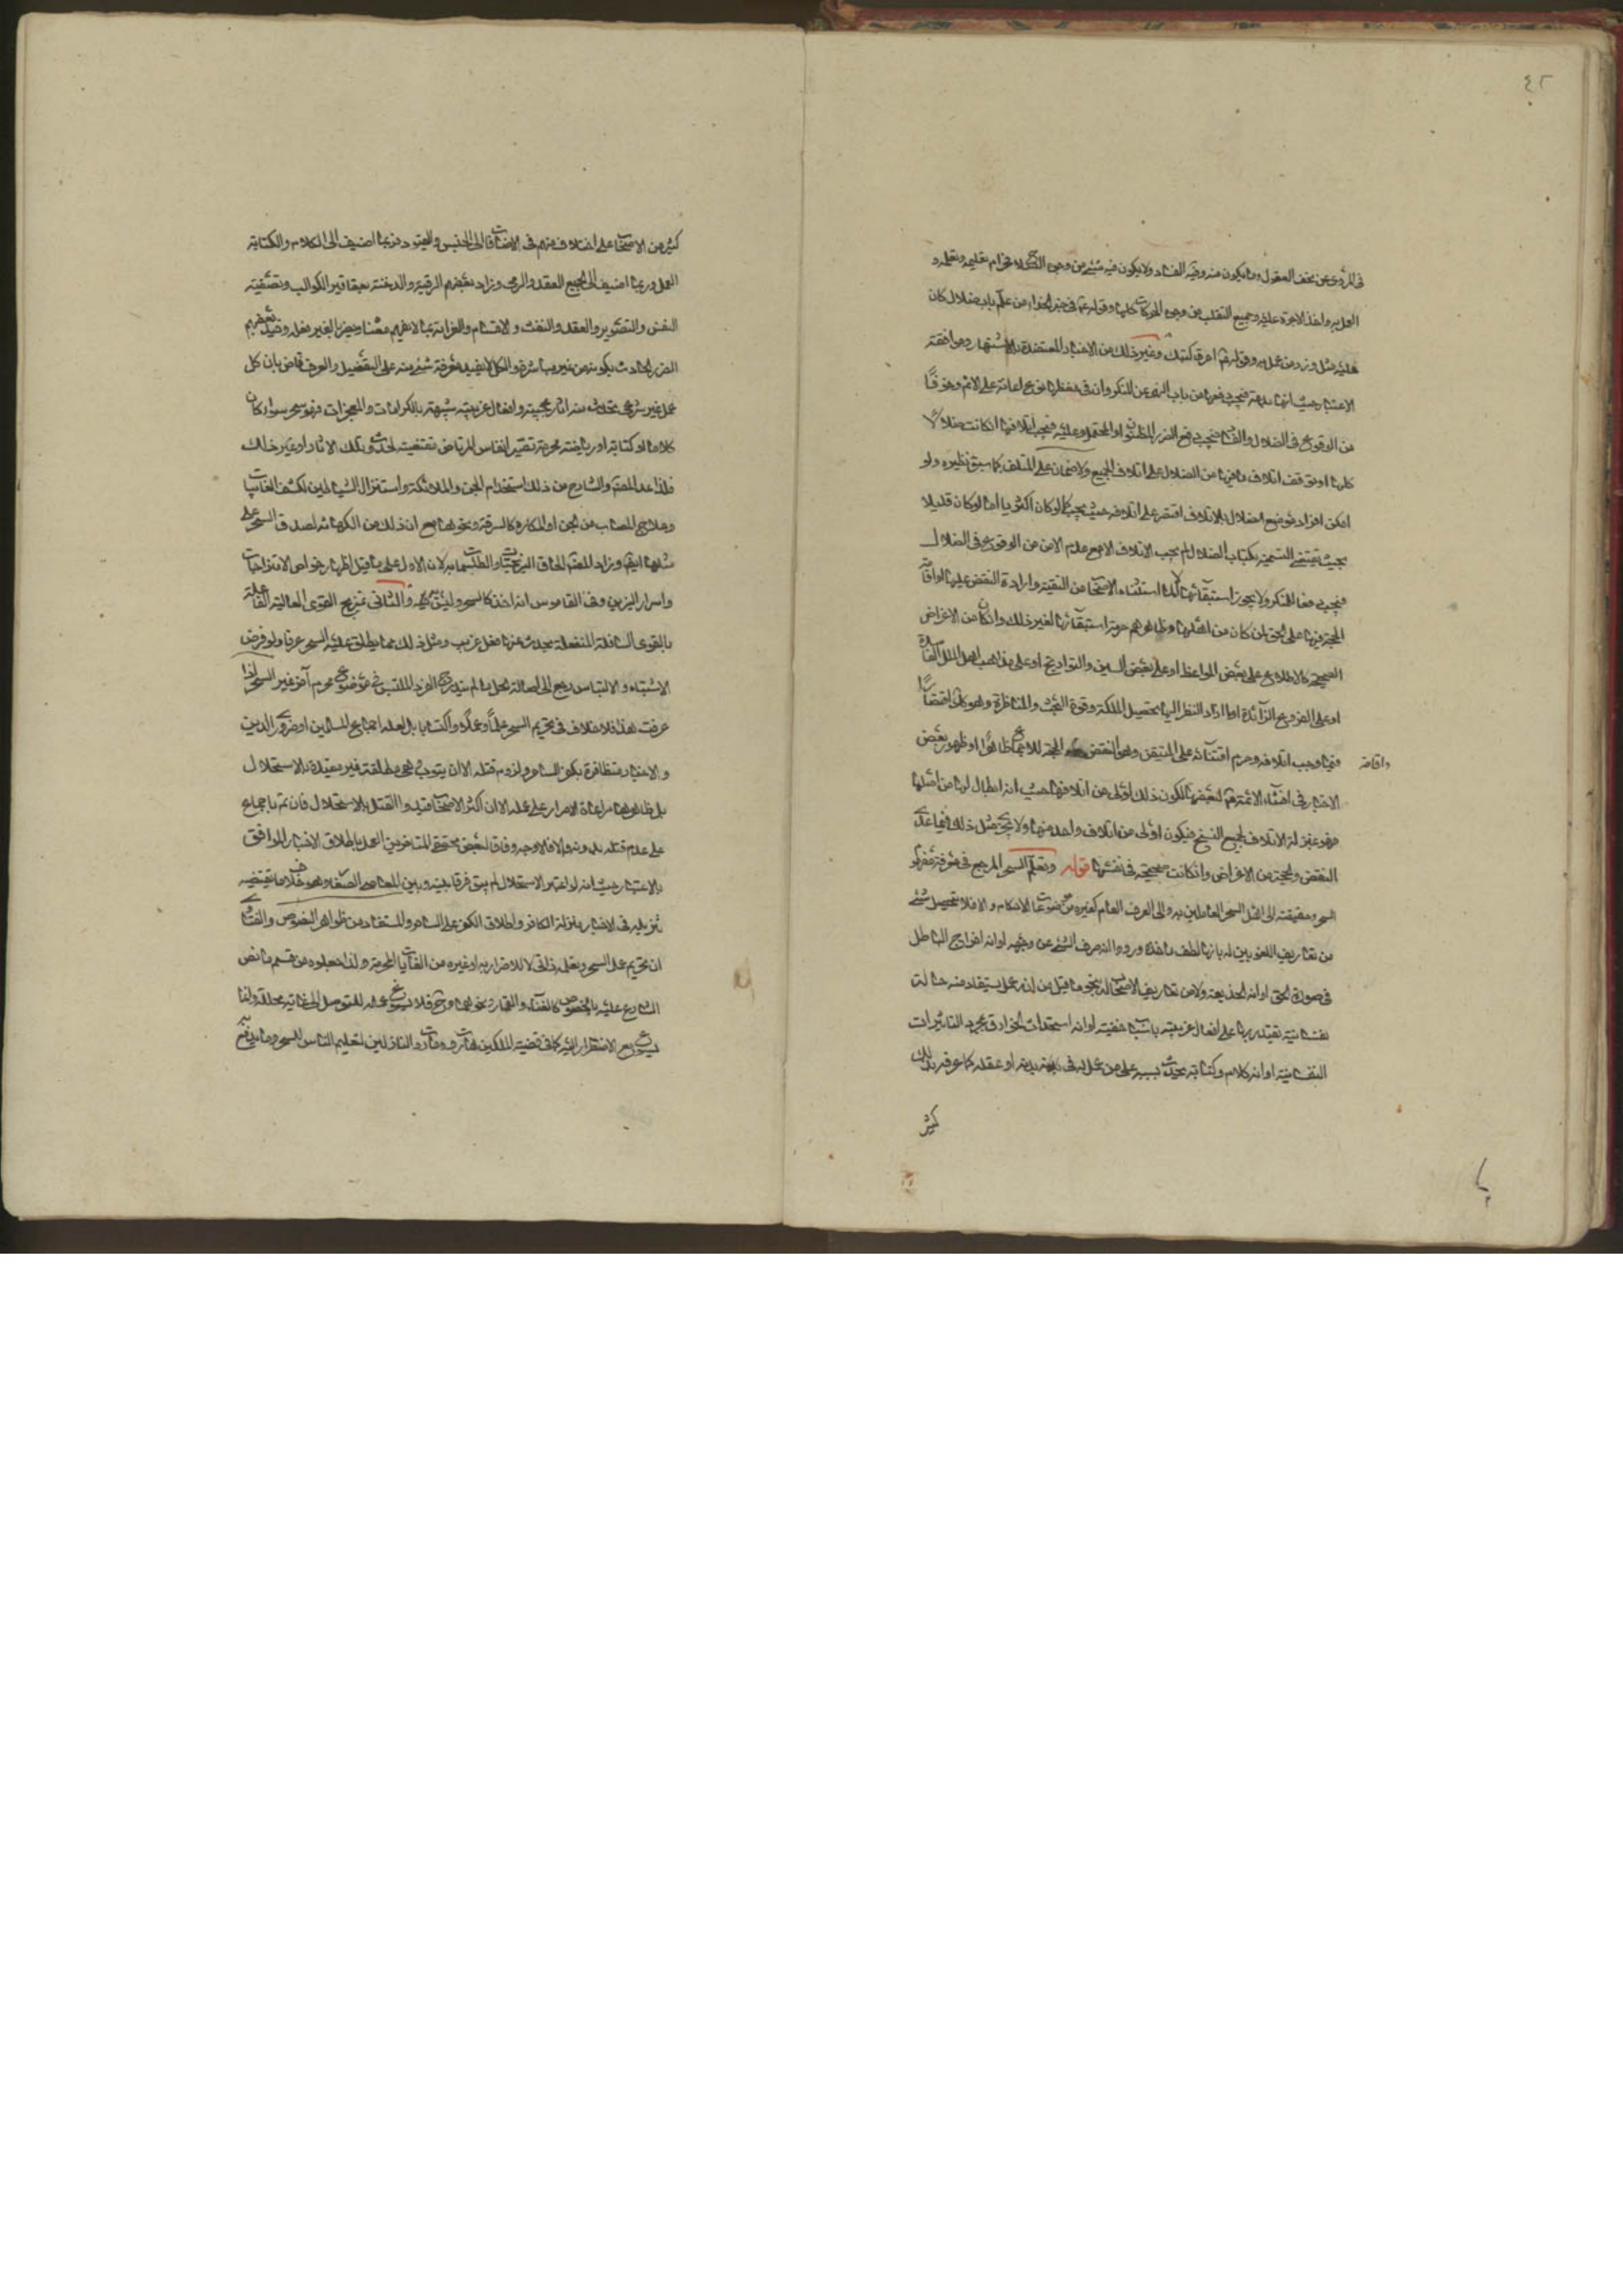 ٤٢
في المروي عن تحف العقول وما يكون منه وفيه الفساد ولا يكون فيه شيء من وجوه الصلاح فحرام تعليمه وتعلمه و
العمل به واخذ الاجرة عليه وجميع التقلب من وجوه الحركات كلها وقوله في خبر الحذاء من علّم باب ضلال كان
عليه مثل وزر من عمل به وقوله احرق كتبك وغير ذلك من الاخبار المعتضدة بالاشتهار وموافقة
الاعتبار حيث انها بدعة فيجب دفعها من باب النهي عن المنكر وان في حفظها نوع اعانة على الاثم وخوفًا
من الوقوع في الضلال والفساد فيجب دفع الضرر المظنون او المحتمل وعليه فيجب اتلافها ان كانت ضلالا
كلها او توقف اتلاف ما فيها من الضلال على اتلاف الجميع ولا ضمان على المتلف كما سبق نظيره ولو
امكن افراد موضع الضلال بالاتلاف اقتصر على اتلافه حيث يجب كما لو كان اكثريا اما لو كان قليلا
بحيث يقتضي التسمية بكتاب الضلال لم يجب الاتلاف الا مع عدم الامن من الوقوع في الضلال
فيجب دفعا للمنكر ولا يجوز استبقائها لما استثناه الاصحاب من التقية وارادة النقض عليها او اقامة
الحجة فيها على الحق لمن كان من اهلها وظاهرهم حرمة استبقائها لغير ذلك وان كان من الاغراض
الصحيحة كالاطلاع على بعض المواعظ او على بعض السير والتواريخ او على مذاهب اهل الملل الفاسدة
او على الفروع الزائدة او اراد النظر اليها تحصيل الملكة وقوة البحث والمناظرة وهو كان اقتصارًا
فيما وجب اتلافه وحرم اقتنائه على المتيقن وهو النقض الحجة للاجماع ظاهرًا او ظهور بعض
واقامة
الاخبار في افشاء الائمة لبعضها لكون ذلك اولى من اتلافها حيث انه ابطال لها من اصلها
فهو بمنزلة الاتلاف لجميع النسخ فيكون اولى من اتلاف واحد منها ولا يجري مثل ذلك فيما عدى
النقض والحجة من الاغراض وان كانت صحيحة في نفسها قوله وتعلم السحر المرجع في معرفة مفهوم
السحر وحقيقته الى اهل السحر العاملين به والى العرف العام كغيره من موضوعات الاحكام والا فلا يتحصل شيء
من تعاريف اللغويين له بانه ما لطف مأخذه ودق وانه صرف الشيء عن وجهه او انه اخراج الباطل
في صورة الحق او انه الخديعة ولا من تعاريف الاصحاب له بنحو ما قيل من انه عمل يستفاد منه حالة
نفسانية يقتدر بها على افعال غريبة باسباب خفية او انه استحداث الخوارق بمجرد التأثيرات
النفسانية او انه كلام وكتابة يحدث بسببه على من عمل له في بدنه او عقله كما عرفه بذلك
كثير
كثير من الاصحاب على اختلاف منهم في الاضافة الى الجنس والعقود فربما اضيف الى الكلام والكتابة
العمل وربما اضيف الى الجميع العقد والرمي وزاد بعضهم الرقية والدخنة بعقاقير الكواكب وتصفية
النفس والتصوير والعقد والنفث والاقسام والعزايم بما لا يفهم معناه ويضر بالغير فعله وقيد بعضهم
الضرر الحادث بكونه من غير مباشرة والكل لا يفيد معرفة شيء منه على التفصيل والعرف قاض بان كل
عمل غير شرعي يتحدث منه اثار عجيبة وافعال غريبة شبيهة بالكرامات والمعجزات فهو سحر سواء كان
كلاما او كتابة او رياضة محرمة تصير انفاس المرتاض مقتضية لحدوث تلك الاثار او غير ذلك
ولذا عد المصنف والشارح من ذلك استخدام الجن والملائكة واستنزال الشياطين لكشف الغائبات
وعلاج المصاب من الجن او المكاره كالسرقة ونحوها مع ان ذلك من الكهانة لصدق السحر على
مثلها ايضا وزاد المصنف الحاق النيرنجيات والطلسمات به لان الاول على ما قيل اظهار خواص الامتزاجات
واسرار النيرين وفي القاموس انه اخذ كالسحر وليس به والثاني تمزيج القوى العالية الفاعلة
بالقوى السافلة المنفعلة يحدث عنها فعل غريب ومثل ذلك مما يطلق عليه السحر عرفا ولو فرض
الاشتباه والالتباس رجع الى اصالة الحل ما لم يندرج الفرد الملتبس في موضوع محرم آخر غير السحر اذا
عرفت هذا فلا خلاف في تحريم السحر علمًا وعملًا واكتسابا بل لعله اجماع المسلمين او ضروري الدين
والاخبار متظافرة بكفر الساحر ولزوم قتله الا ان يتوب وهي مطلقة غير مقيدة بالاستحلال
بل ظاهرها مراعاة الاصرار على عمله الا ان اكثر الاصحاب قيدوا القتل بالاستحلال فان تم باجماع
على عدم قتله بدونه والا فلا وجه وفاقا لبعض محققي المتاخرين العمل باطلاق الاخبار الموافق
بالاعتبار حيث انه لو اعتبر الاستحلال لم يبق فرقا بينه وبين المعاصي الصغار وهو خلاف ما يقتضيه
تنزيله في الاخبار منزلة الكافر واطلاق الكفر على الساحر والمستفاد من ظواهر النصوص والفتاوى
ان تحريم عمل السحر وتعلمه ذاتي لا للاضرار به او غيره من الغايات المحرمة ولذا جعلوه من قسم ما نص
الشارع عليه بالخصوص كالغناء والقمار ونحوهما وح فلا يسوغ عمله للتوصل الى غاية محللة وانما
يسوغ مع الاضطرار اليه كما في قضية الملكين هاروت وماروت النازلين لتعليم الناس السحر وما يدفع به